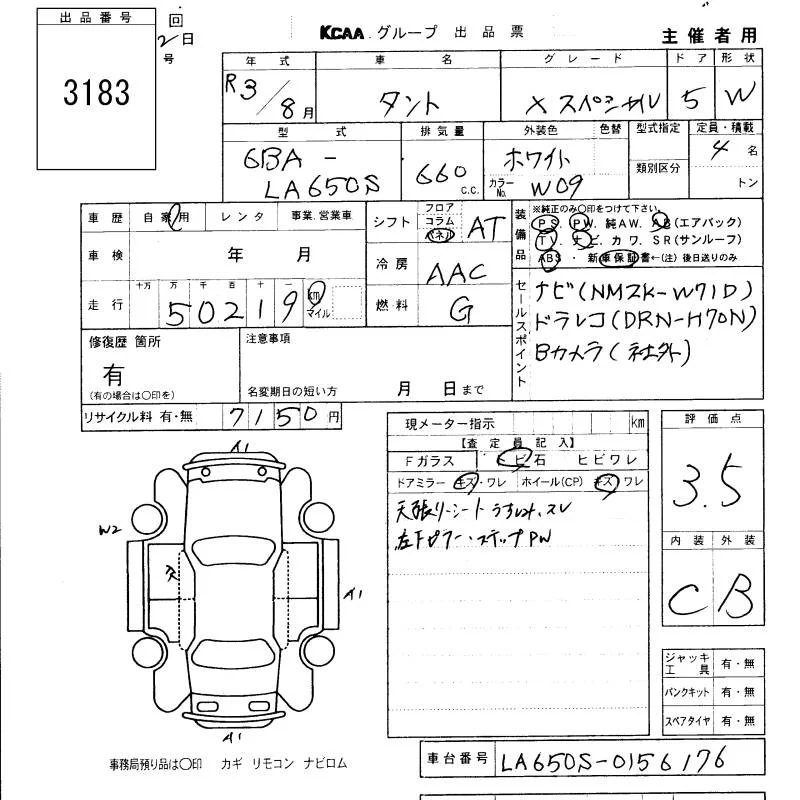 出品番号
3183
回
2日
号
KCAA グループ 出品票
主催者用
年式
R3/8月
車名
タント
グレード
X スペシャル
ドア
5
形状
W
型式
6BA-
LA650S
排気量
660 c.c.
外装色
ホワイト
色替
カラーNo. W09
型式指定
類別区分
定員・積載
4名
トン
車歴 自家用 レンタ 事業.営業車
車検 年 月
走行 十万 万 千 百 十 一
50219 km
マイル
シフト フロア コラム パネル AT
冷房 AAC
燃料 G
装備品
※純正のみ○印をつけて下さい。
PS. PW. 純AW. AB(エアバック)
TV. ナビ. カワ. SR(サンルーフ)
ABS ・ 新車保証書←(注) 後日送りのみ
セールスポイント
ナビ(NMZK-W71D)
ドラレコ(DRN-H70N)
Bカメラ(社外)
修復歴 箇所
有
(有の場合は○印を)
注意事項
名変期日の短い方 月 日まで
リサイクル料 有・無 7150円
現メーター指示 km
【査定員記入】
Fガラス トビ石 ヒビワレ
ドアミラー キズ・ワレ ホイール(CP) キズ ワレ
天張り-シート うすじみ.スレ
左下ピラー.ステップPW
評価点
3.5
内装 外装
C B
A1
W2
A1
A1
ジャッキ工具 有・無
パンクキット 有・無
スペアタイヤ 有・無
事務局預り品は○印 カギ リモコン ナビロム
車台番号 LA650S-0156176